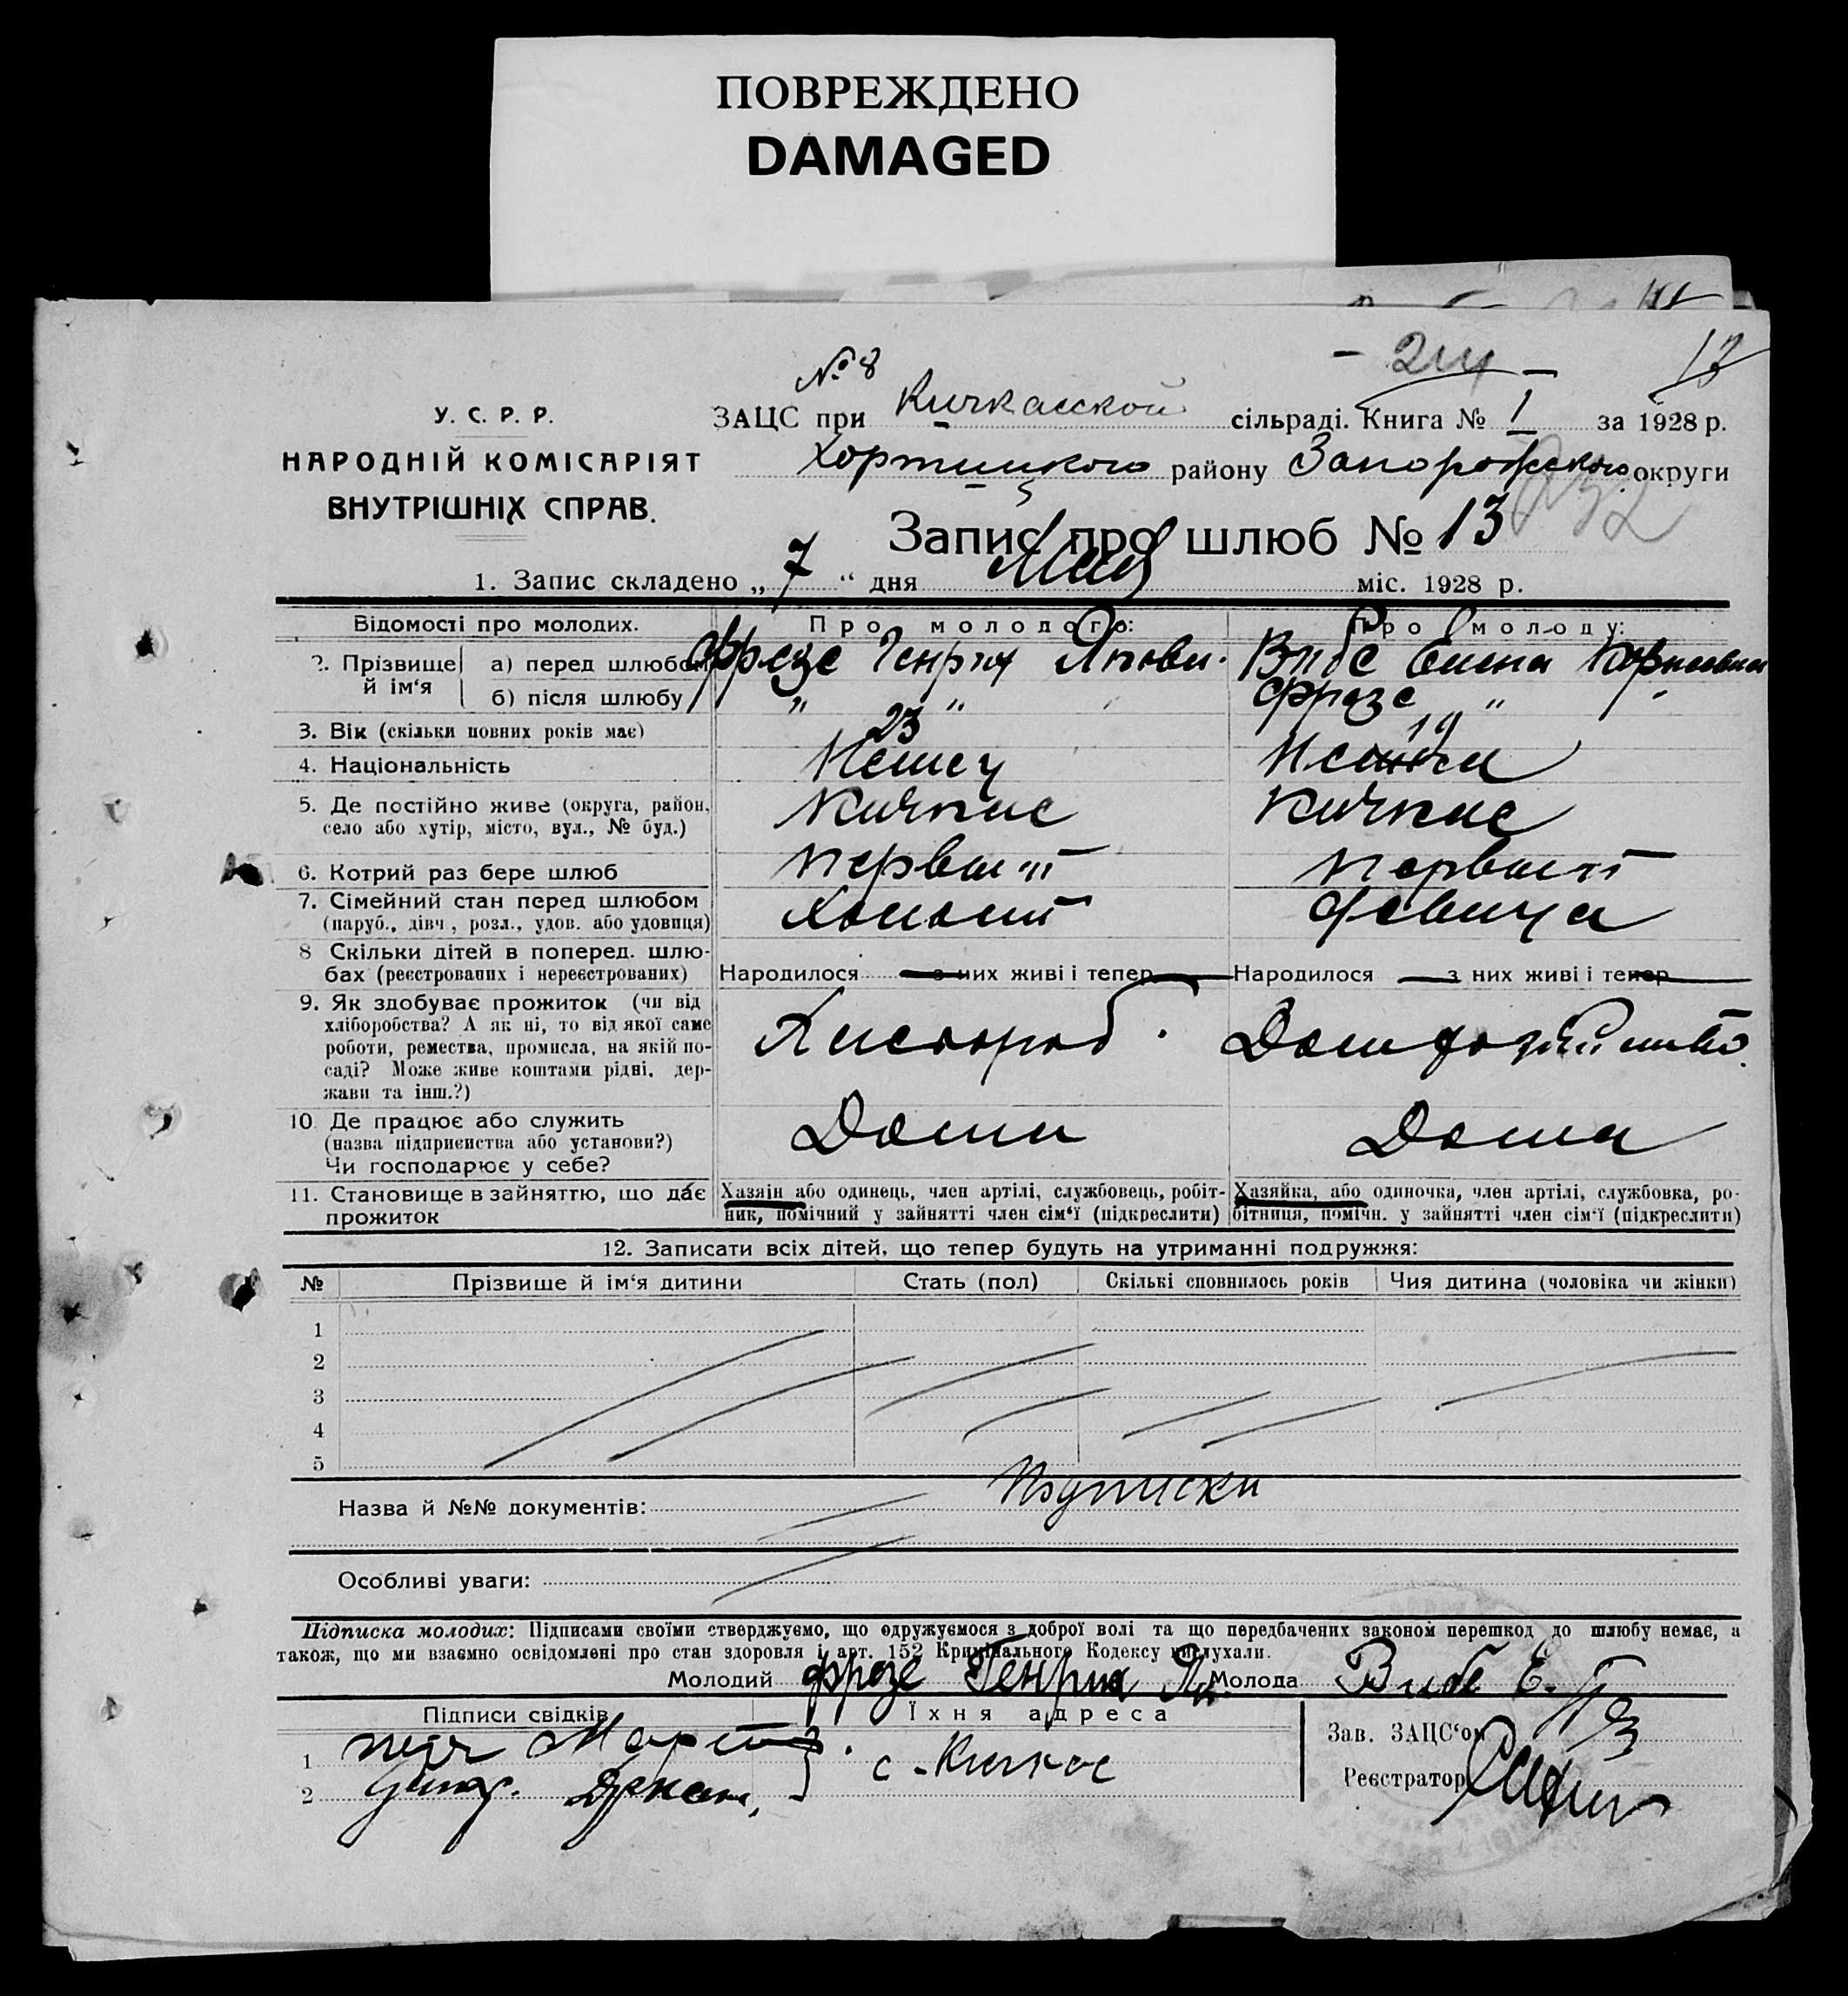 ПОВРЕЖДЕНО
DAMAGED
- 214 -
№ 8
У. С. Р. Р.
НАРОДНІЙ КОМІСАРІЯТ
ВНУТРІШНІХ СПРАВ.
ЗАЦС при Кичкасской сільраді. Книга № 1 за 1928 р.
Хортицкого району Запорожского округи
Запис про шлюб № 13
1. Запис складено „ 7 “ дня Мая міс. 1928 р.
Відомості про молодих. Про молодого: Про молоду:
2. Прізвище й ім‘я а) перед шлюбом Фрезе Генрих Яковл. Вибе Елена Корнеевна
б) після шлюбу " " Фрезе " "
3. Вік (скільки повних років має) 23 19
4. Національність Немец Немка
5. Де постійно живе (округа, район, село або хутір, місто, вул., № буд.) Кичкас Кичкас
6. Котрий раз бере шлюб Первый Первый
7. Сімейний стан перед шлюбом (паруб., дівч., розл., удов. або удовиця) Холост Девица
8 Скільки дітей в поперед. шлюбах (реєстрованих і нереєстрованих) Народилося — з них живі і тепер — Народилося — з них живі і тепер —
9. Як здобуває прожиток (чи від хліборобства? А як ні, то від якої саме роботи, ремества, промисла, на якій посаді? Може живе коштами рідні, держави та інш.?) Хлебороб.
10 Де працює або служить (назва підприємства або установи?) Чи господарює у себе? Дома Дома
11. Становище в зайняттю, що дає прожиток
Хазяін або одинець, член артілі, службовець, робітник, помічний у зайнятті член сім‘ї (підкреслити)
Хазяйка, або одиночка, член артілі, службовка, робітниця, помічн. у зайнятті член сім‘ї (підкреслити)
12. Записати всіх дітей, що тепер будуть на утриманні подружжя:
№ Прізвище й ім‘я дитини Стать (пол) Скількі сповнилось років Чия дитина (чоловіка чи жінки)
1
2
3
4
5
Назва й №№ документів: Подписки
Особливі уваги:
Підписка молодих: Підписами своїми стверджуємо, що одружуємося з доброї волі та що передбачених законом перешкод до шлюбу немає, а
також, що ми взаємно освідомлені про стан здоровля і арт. 152 Кримінального Кодексу вислухали.
Молодий Фрезе Генрих Як. Молода Вибе Е.
Підписи свідків Їхня адреса
1
2
с - Кичкас
Зав. ЗАЦС‘ом
Реєстратор